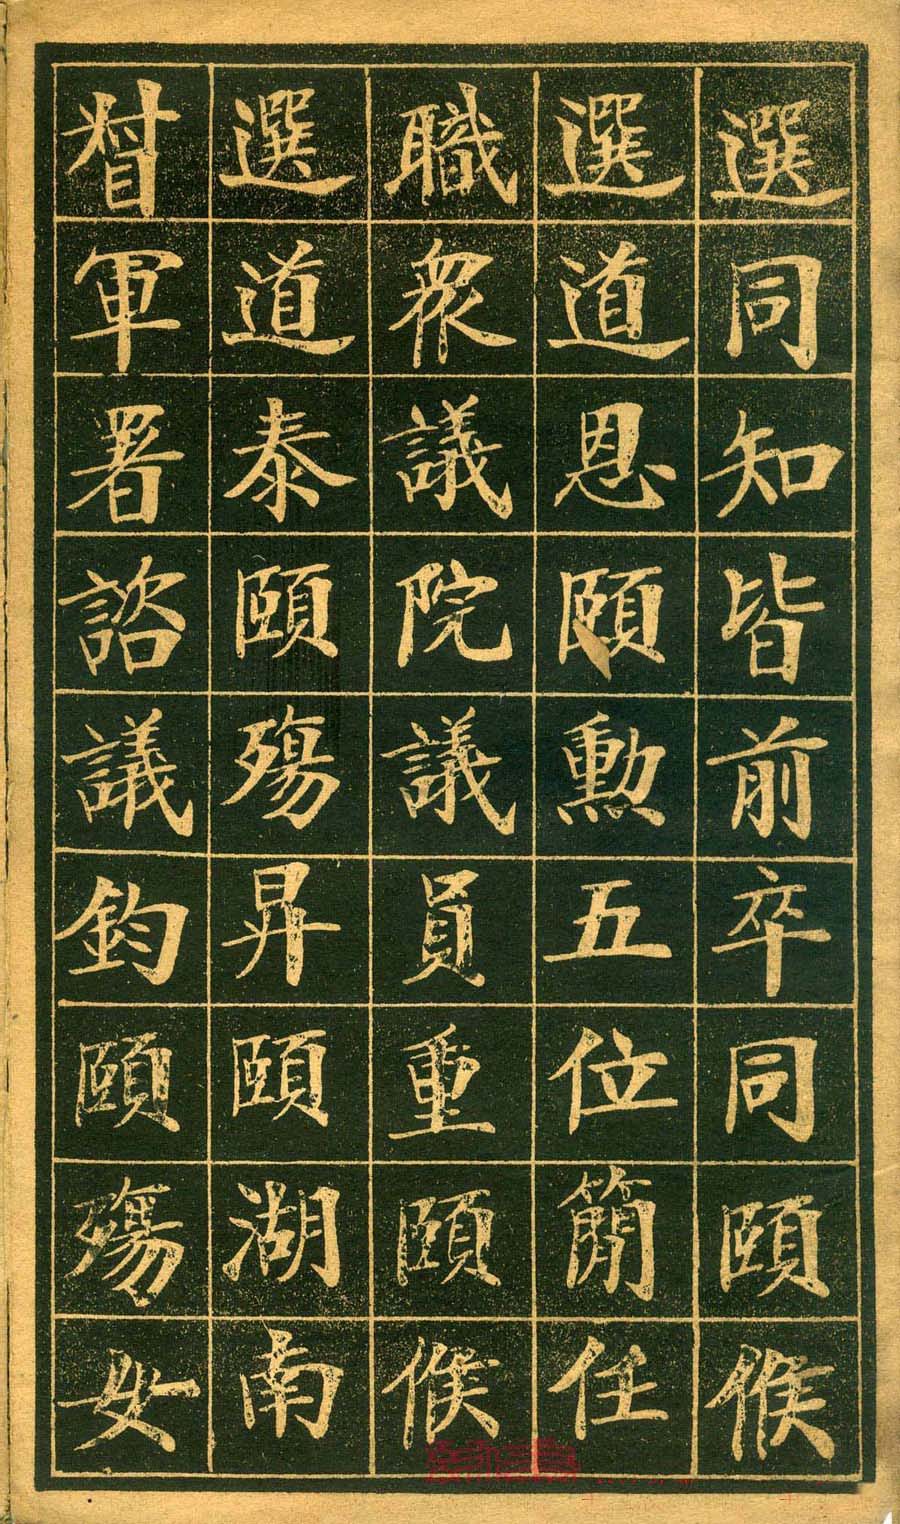 選同知皆前卒同頤候
選道恩頤勲五位簡任
職眾議院議員重頤候
選道泰頤殤昇頤湖南
督軍署諮議鈞頤殤女